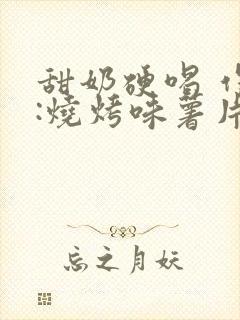 甜奶硬唱
:燒烤味薯片
忘之月妖